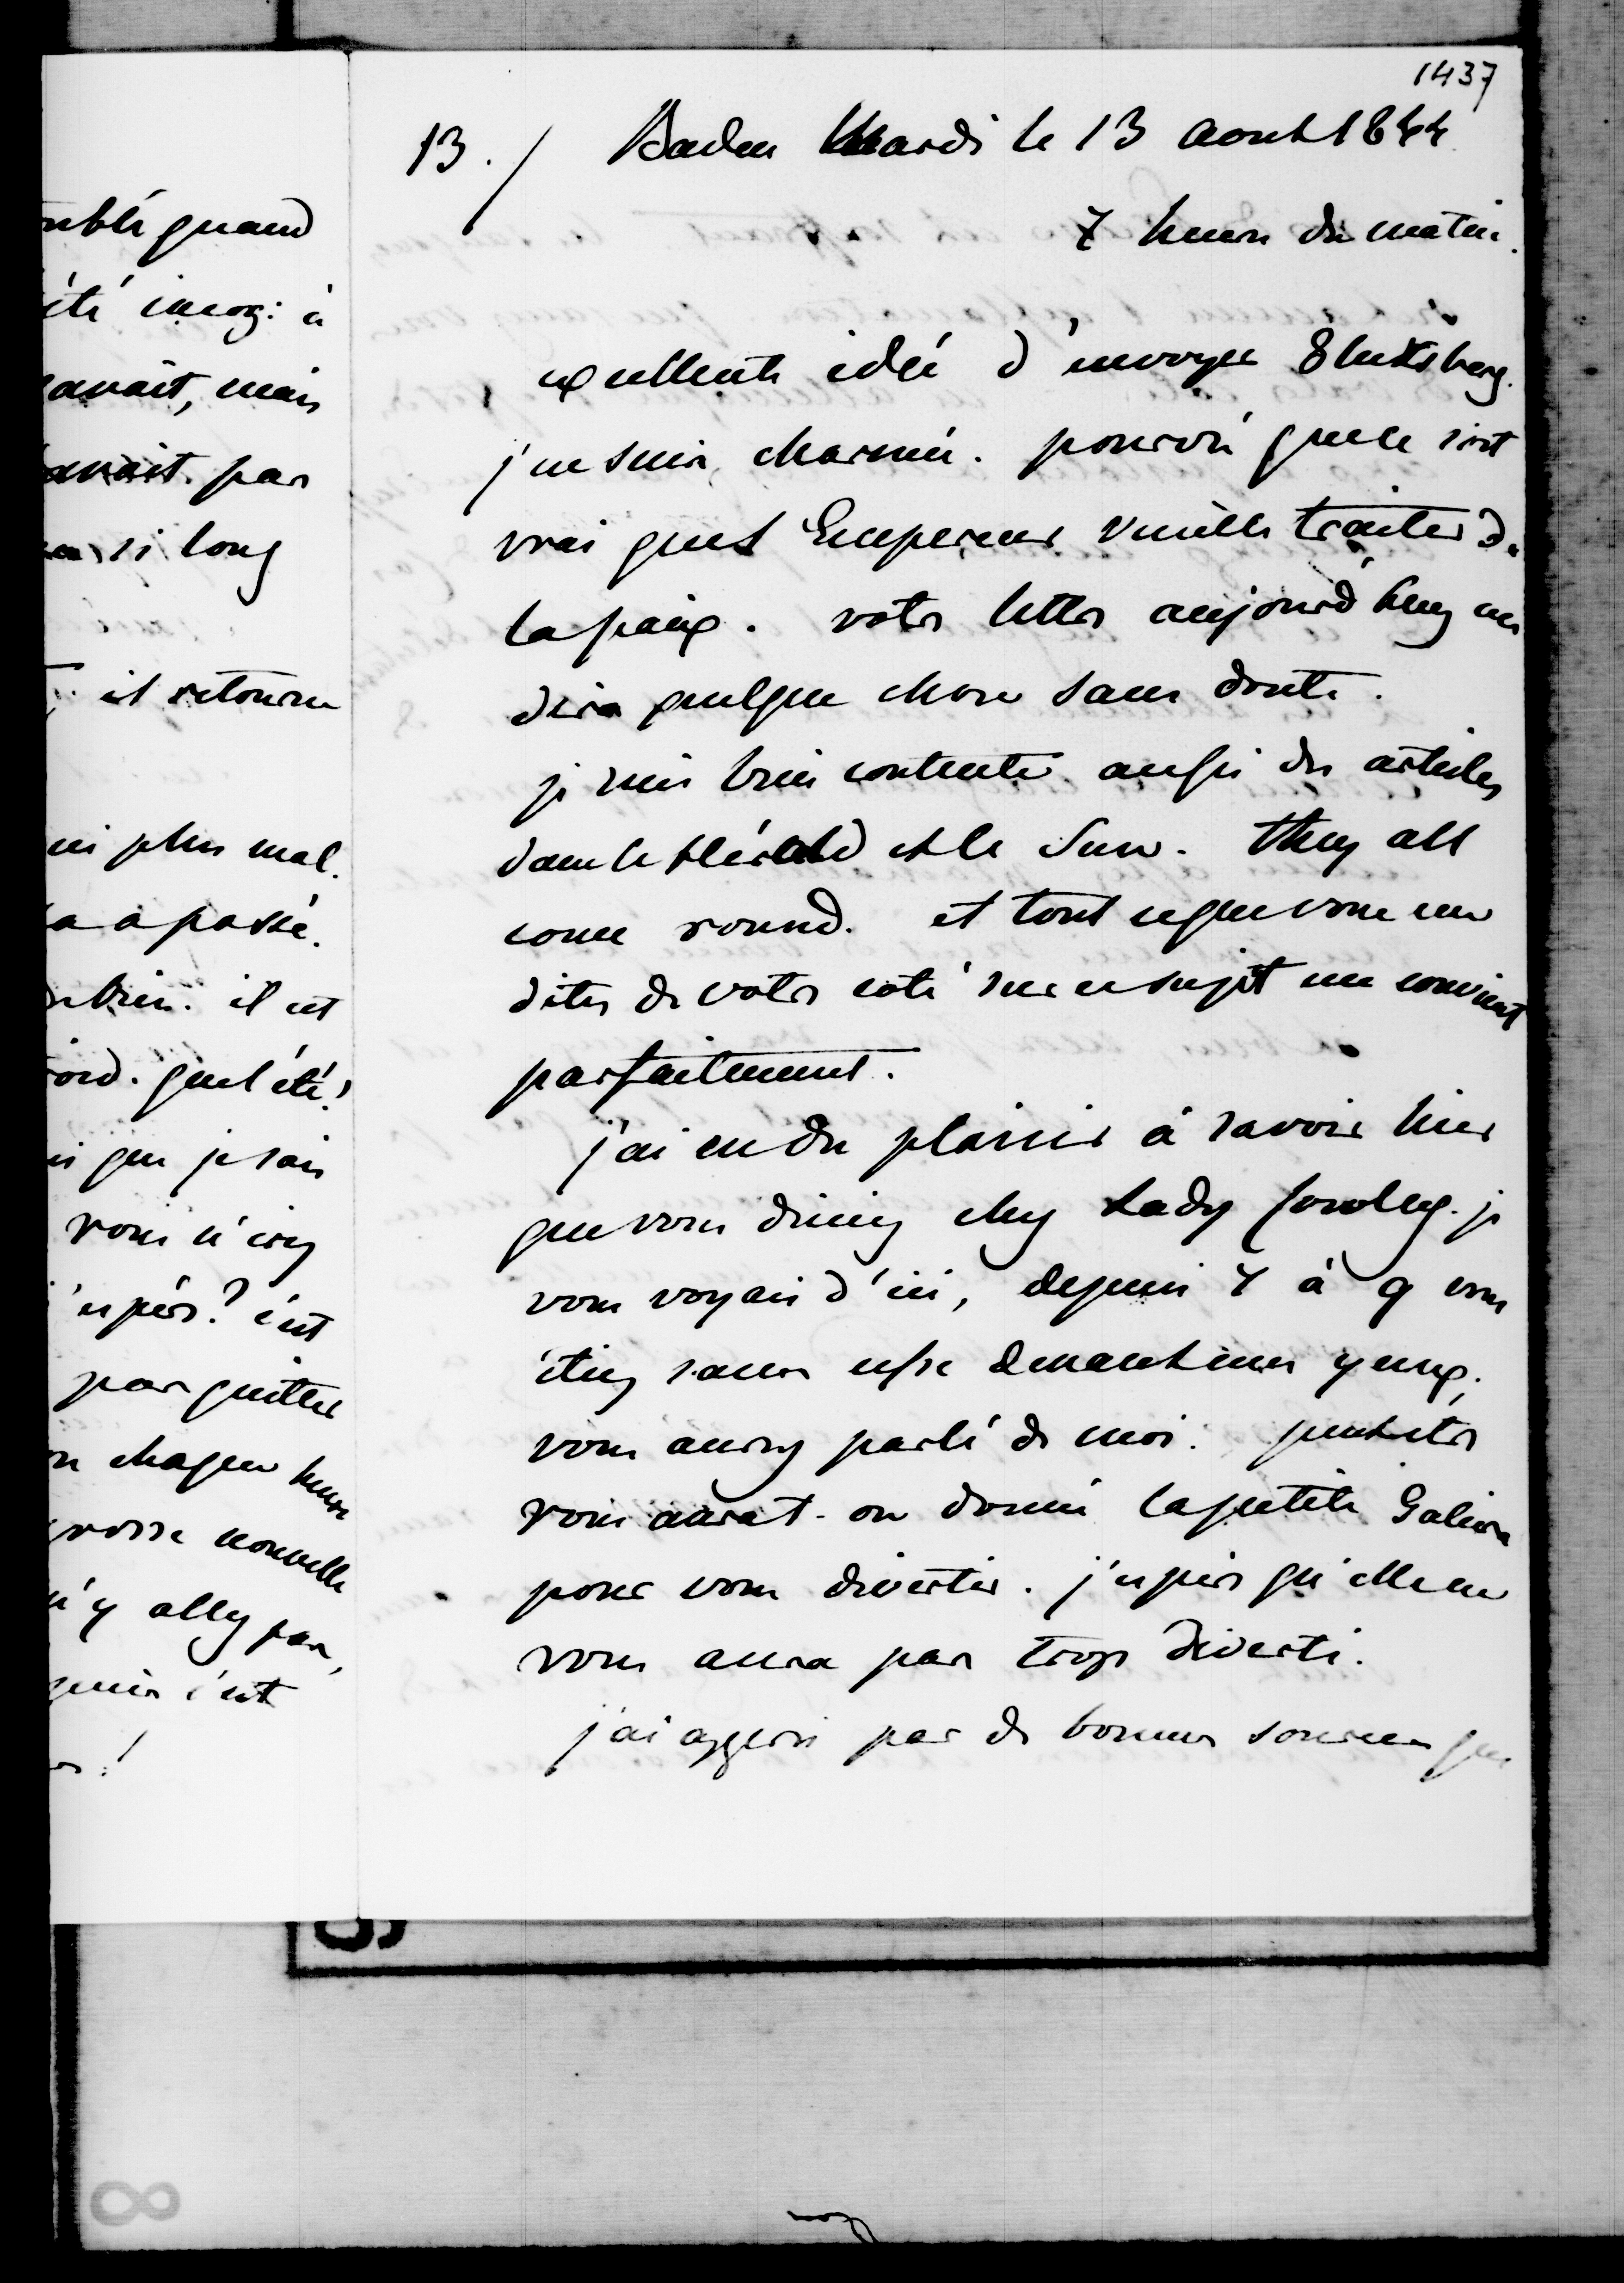 1437
13./ Baden Mardi le 13 aout 1844
7 heures du matin.
excellente idée d'envoyer Glucksberg.
j'en suis charmée. pourvu que ce soit
vrai que l'Empereur veuille traiter de
la paix. votre lettre aujourd'huy me
dira quelque chose sans doute.
je suis bien contente aussi des articles
dans le Hérald et le Sun. they all
come round. et tout ce que vous me
dites de votre coté sur ce sujet me convient
parfaitement.
j'ai eu du plaisir à savoir hier
que vous diniez chez Lady Cowley. je
vous voyais d'ici, depuis 7 à 9 vous
étiez sans cesse devant mes yeux,
vous aurez parlé de moi. peut etre
vous aurat-on donné la petite Galiera
pour vous divertir. j'espère qu'elle ne
vous aura pas trop diverti.
j'ai appris par de bonnes sources que
oublé quand
été incog: à
avait, mais
avait pas
si long
il retourne
ni plus mal.
a a passé.
bien. il est
froid. quel été!
que je sais
vous n'irez
j'espère? c'est
pas quitter
chaque heure
grosse nouvelle
n'y allez pas,
puis c'est
!